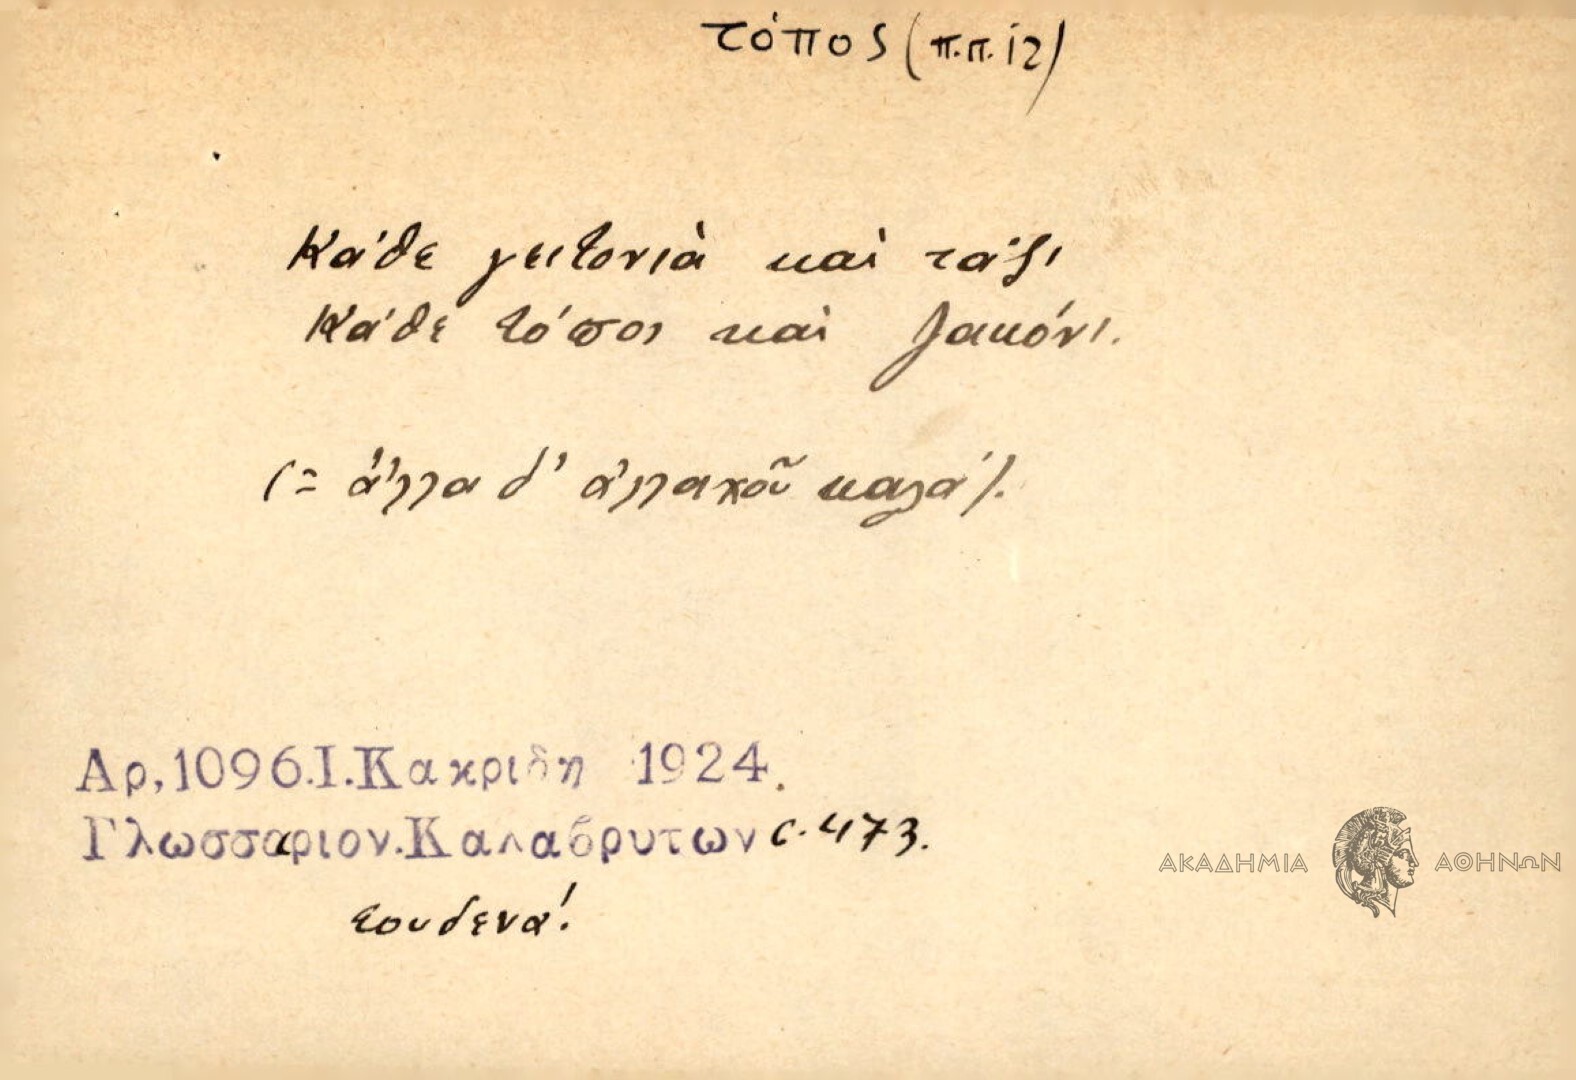 τόπος (π.π. 12)
Κάθε γειτονιὰ καὶ τάξι
Κάθε τόπος καὶ ζακόνι.
(= ἄλλα δ' ἀλλαχοῦ καλά).
Αρ,1096.Ι.Κακριδη 1924.
Γλωσσαριον.Καλαβρυτων σ. 473.
ΑΚΑΔΗΜΙΑ ΑΘΗΝΩΝ